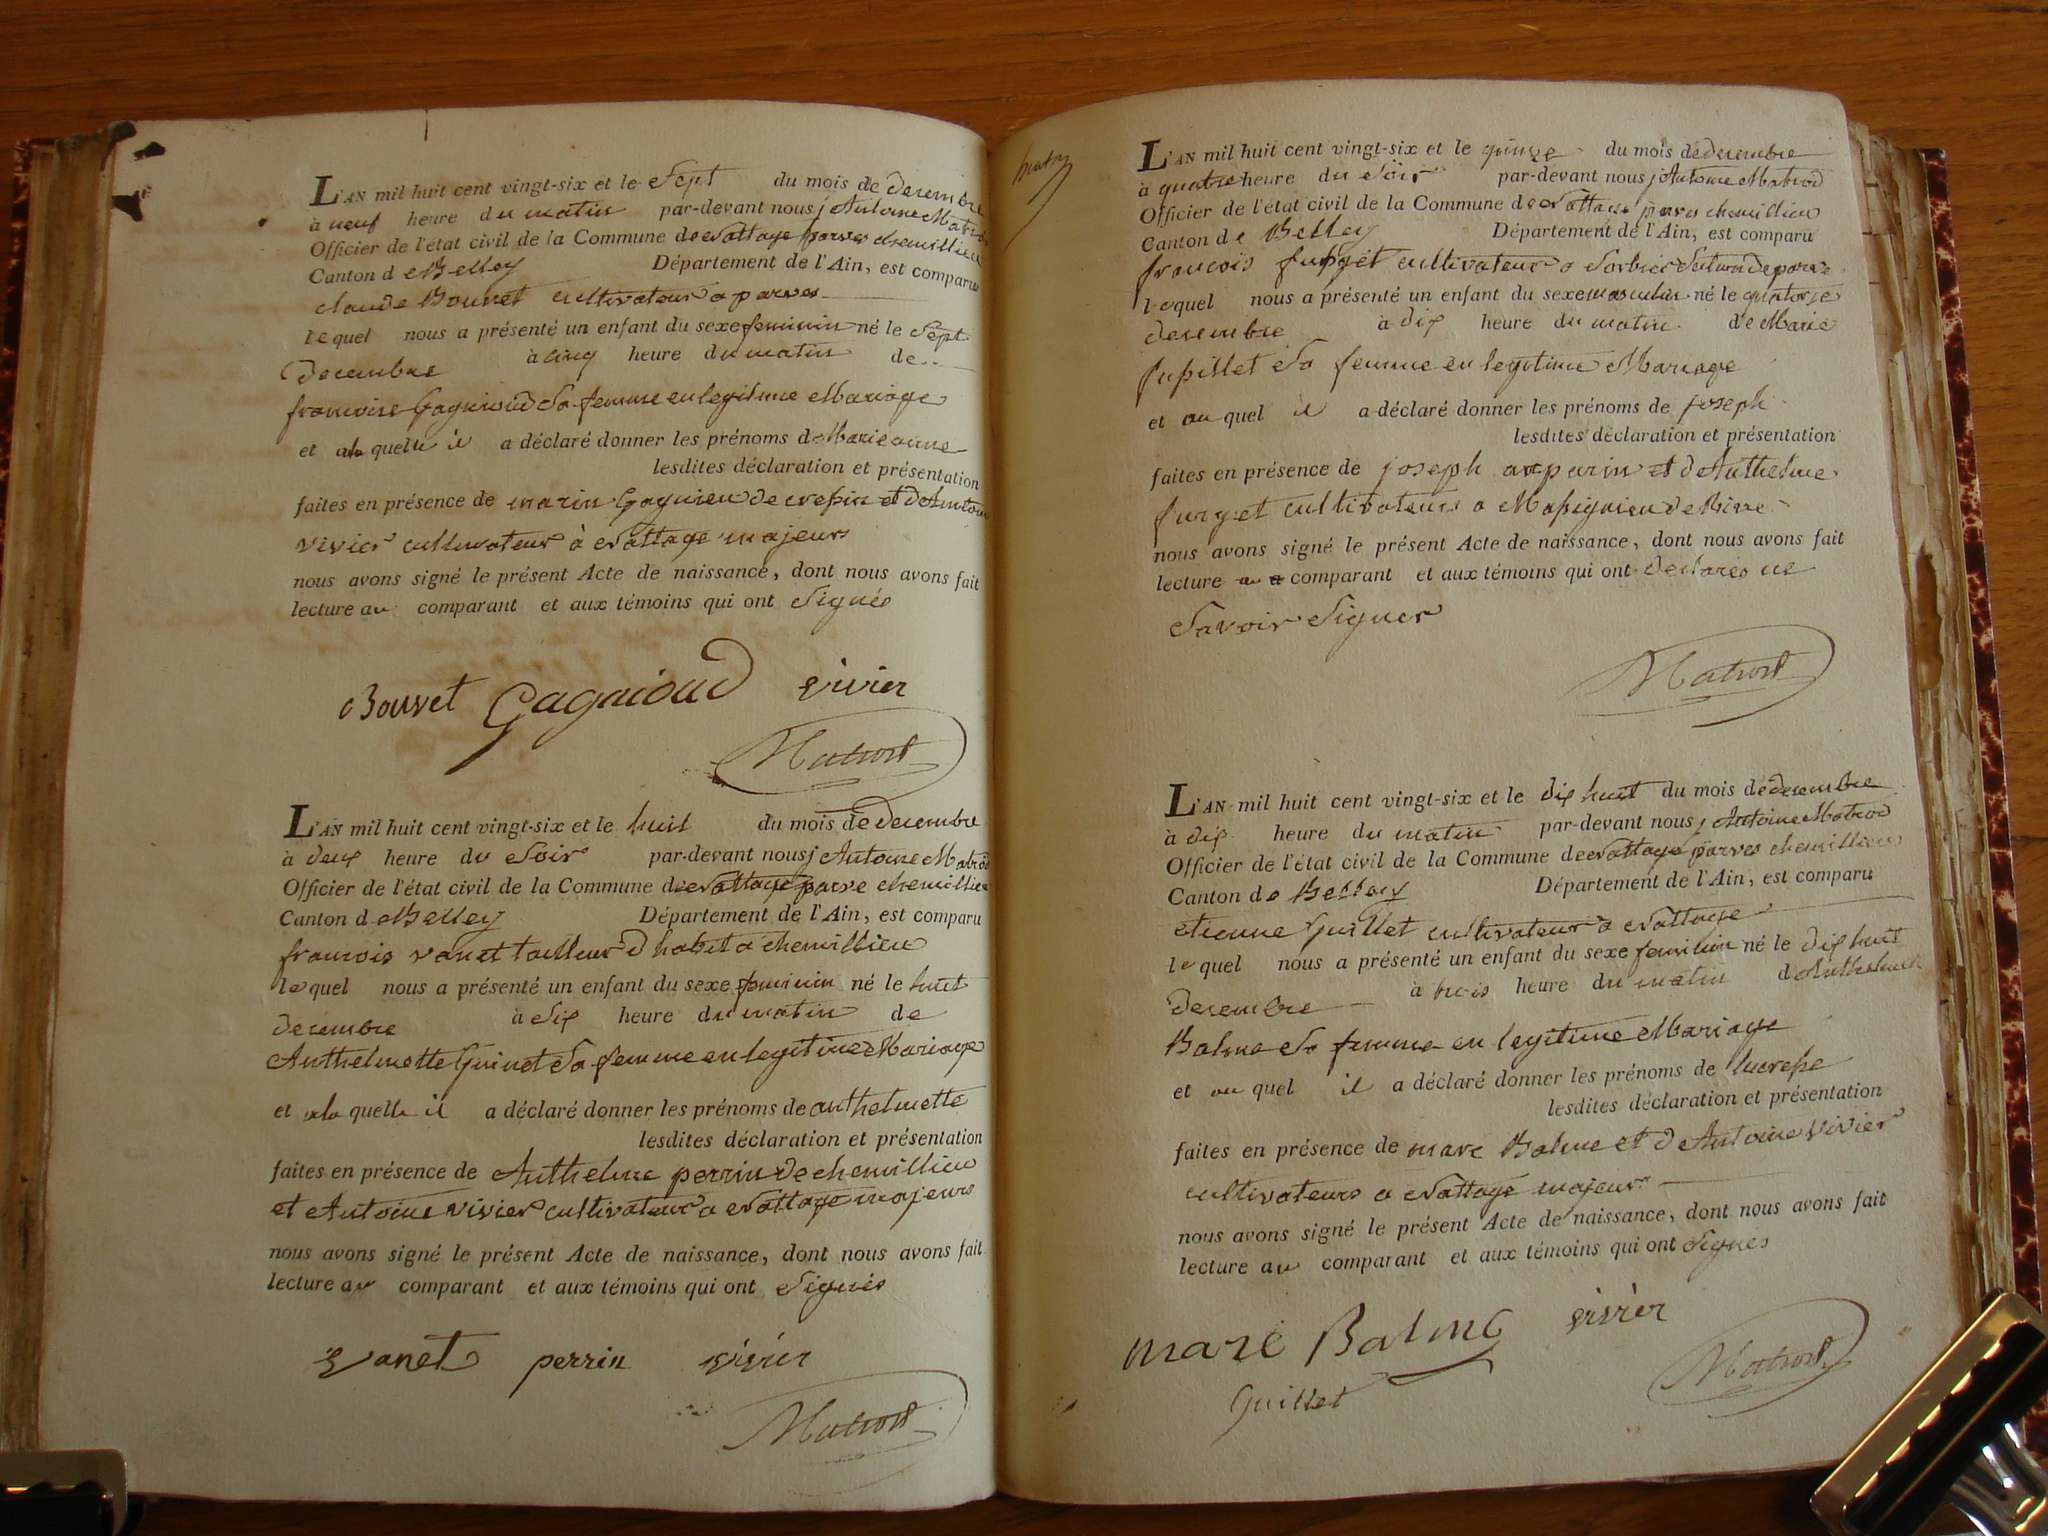 L'AN mil huit cent vingt-six et le Sept du mois de decembre
à neuf heure du matin par-devant nous j Antoine Matrod
Officier de l'état civil de la Commune de Nattage parves chemillieu
Canton de Belley Département de l'Ain, est comparu
claude Bouvet cultivateur a parves
lequel nous a présenté un enfant du sexe feminin né le Sept
Decembre à cinq heure du matin de
francoise Gagnioud Sa femme en legitime Mariage
et a la quelle il a déclaré donner les prénoms de Marie anne
lesdites déclaration et présentation
faites en présence de marin Gagnieu de crepin et d'Antoine
vivier cultivateur à Nattage majeurs
nous avons signé le présent Acte de naissance, dont nous avons fait
lecture au comparant et aux témoins qui ont Signés
Bouvet Gagnioud vivier
Matrod
L'AN mil huit cent vingt-six et le huit du mois de decembre
à deux heure du Soir par-devant nous j Antoine Matrod
Officier de l'état civil de la Commune de Nattage parve chemillieu
Canton de Belley Département de l'Ain, est comparu
francois vanet tailleur d'habit a chemillieu
lequel nous a présenté un enfant du sexe feminin né le huit
decembre à dix heure du matin de
Anthelmette Guinet Sa femme en legitime Mariage
et a la quelle il a déclaré donner les prénoms de anthelmette
lesdites déclaration et présentation
faites en présence de Anthelme perrin de chemillieu
et Antoine vivier cultivateur a Nattage majeurs
nous avons signé le présent Acte de naissance, dont nous avons fait
lecture au comparant et aux témoins qui ont Signés
vanet perrin vivier
Matrod
L'AN mil huit cent vingt-six et le quinze du mois de decembre
à quatre heure du Soir par-devant nous j Antoine Matrod
Officier de l'état civil de la Commune de Nattage parves chemillieu
Canton de Belley Département de l'Ain, est comparu
francois furget cultivateur a Sorbier de parve
lequel nous a présenté un enfant du sexe masculin né le quatorze
decembre à dix heure du matin de Marie
fupillet Sa femme en legitime Mariage
et au quel il a déclaré donner les prénoms de joseph
lesdites déclaration et présentation
faites en présence de joseph et d'Anthelme
furget cultivateurs a Massignieu de Rive
nous avons signé le présent Acte de naissance, dont nous avons fait
lecture au comparant et aux témoins qui ont declarés ne
Savoir Signer
Matrod
L'AN mil huit cent vingt-six et le dix huit du mois de decembre
à dix heure du matin par-devant nous j Antoine Matrod
Officier de l'état civil de la Commune de Nattage parves chemillieu
Canton de Belley Département de l'Ain, est comparu
etienne Guillet cultivateur a Nattage
lequel nous a présenté un enfant du sexe feminin né le dix huit
decembre à trois heure du matin d'Anthelmette
Balme Sa femme en legitime Mariage
et au quel il a déclaré donner les prénoms de lucresse
lesdites déclaration et présentation
faites en présence de marc Balme et d'Antoine vivier
cultivateurs a Nattage majeur
nous avons signé le présent Acte de naissance, dont nous avons fait
lecture au comparant et aux témoins qui ont Signés
marc Balme vivier
Guillet Matrod